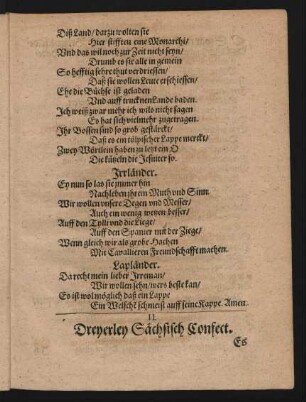 Diß Land/ darzu wolten sie
Hier stifften eine Monarchi/
Vnd das wil noch zur Zeit nicht seyn/
Drumb es sie alle in gemein
So hefftig sehre thut verdriessen/
Daß sie wollen Leute erschiessen/
Ehe die Büchse ist geladen
Vnd auff trucknen Lande baden.
Ich weiß zwar mehr ich wils nicht sagen
Es hat sich viel mehr zugetragen.
Ihr Bossen sind so grob gestürckt/
Daß es ein tölpischer Lappe merckt/
Zwey Wörtlein haben zu letzt ein O
Die kützeln die Jesuiter so.
Irrländer.
Ey nun so las sie immer hin
Nachleben ihrem Muth vnd Sinn.
Wir wollen vnsere Degen vnd Messer/
Auch ein wenig wetzen besser/
Auff den Tylli vnd die Liege/
Auff den Spanier mit der Ziege/
Wenn gleich wir als grobe Hachen
Mit Cavallieren Freundschafft machen.
Lapländer.
Da recht mein lieber Irrman/
Wir wollen sehn/ wers beste kan/
Es ist wol möglich daß ein Lappe
Ein Welschē schmeist auff seine Kappe. Amen.
II.
Dreyerley Sächsisch Confect.
Es